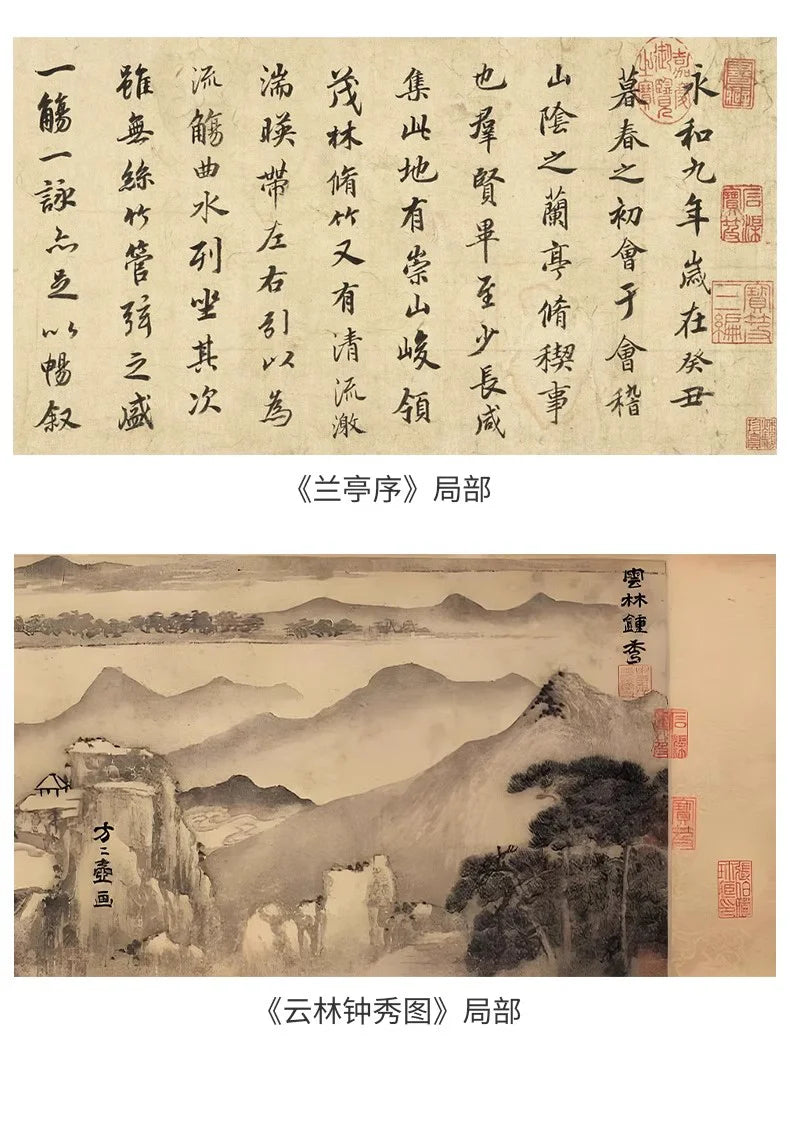 永和九年歲在癸丑
暮春之初會于會稽
山陰之蘭亭脩稧事
也羣賢畢至少長咸
集此地有崇山峻領
茂林脩竹又有清流激
湍暎帶左右引以為
流觴曲水列坐其次
雖無絲竹管弦之盛
一觴一詠亦足以暢叙
嘉慶御覽之寶
石渠寶笈
寶笈三編
《兰亭序》局部
雲林鍾秀
方〻壺画
石渠寶笈
《云林钟秀图》局部